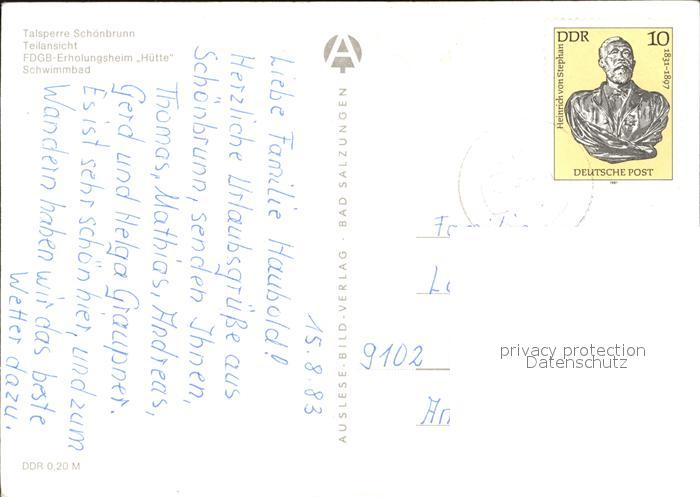 Talsperre Schönbrunn
Teilansicht
FDGB-Erholungsheim „Hütte"
Schwimmbad
15.8.83
Liebe Familie Haubold!
Herzliche Urlaubsgrüße aus
Schönbrunn, senden Ihnen,
Thomas, Mathias, Andreas,
Gerd und Helga Graupner.
Es ist sehr schön hier, und zum
Wandern haben wir das beste
Wetter dazu.
DDR 0,20 M
AUSLESE-BILD-VERLAG · BAD SALZUNGEN
A
DDR 10
Heinrich von Stephan
1831-1897
DEUTSCHE POST
1981
9102
privacy protection
Datenschutz